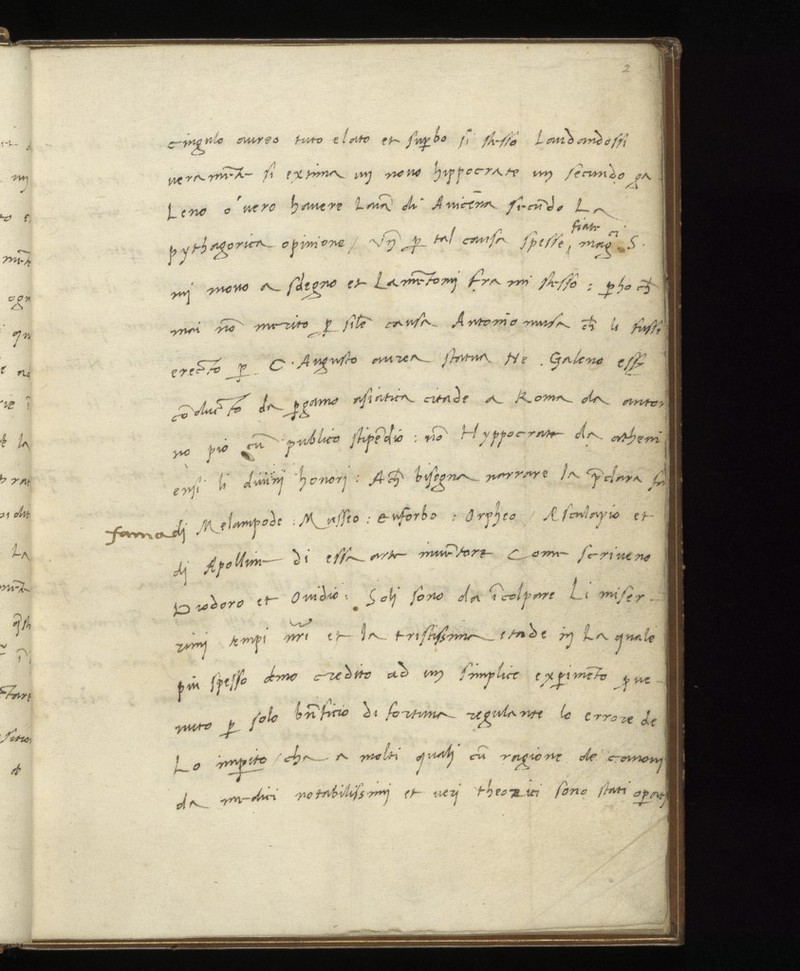 2
cingulo aureo tuto elato et sup̄bo sī stesso Laudandossi
veram̄te si extima un novo hippocrate un secundo ga
Leno o vero havere Lan̄a di Avicēna secūdo La
pythagorica opinione / Vn̄ p̄ tal causa spesse fiate mag.ci S.
mi movo a sdegno et Lamētomi fra mi stesso : p̄ho ch̄
mai nō merito p̄ sil̄e causa Antonio musa ch̄ li fusse
erecto p̄ C. Augusto aurea statua Ne . Galeno ess̄
cōducto da p̄gamo asiatica citade a Roma da anto
no pio cū publico stipēdio : nō Hyppocrate da atheni
ensi li divini honori : Ach̄ bisogna narrare la p̄clara
fama di Melampode : Musseo : Euforbo : Orpheo / Æsculapio et
di Apolline di essa arte inventore Come scriveno
Diodoro et Ovidio : Soli sono da īcolpare Li miser
rimi tempi nr̄i et la tristissima etade in La quale
piu spesso damo credito ad un simplice exp̄imēto p̄ve
nuto p̄ solo bn̄ficio di fortuna regulante lo errore de
Lo imp̄ito / cha a molti quali cū ragione de canoni
da medici notabilissimi et veri theorici sono stati op̄ati